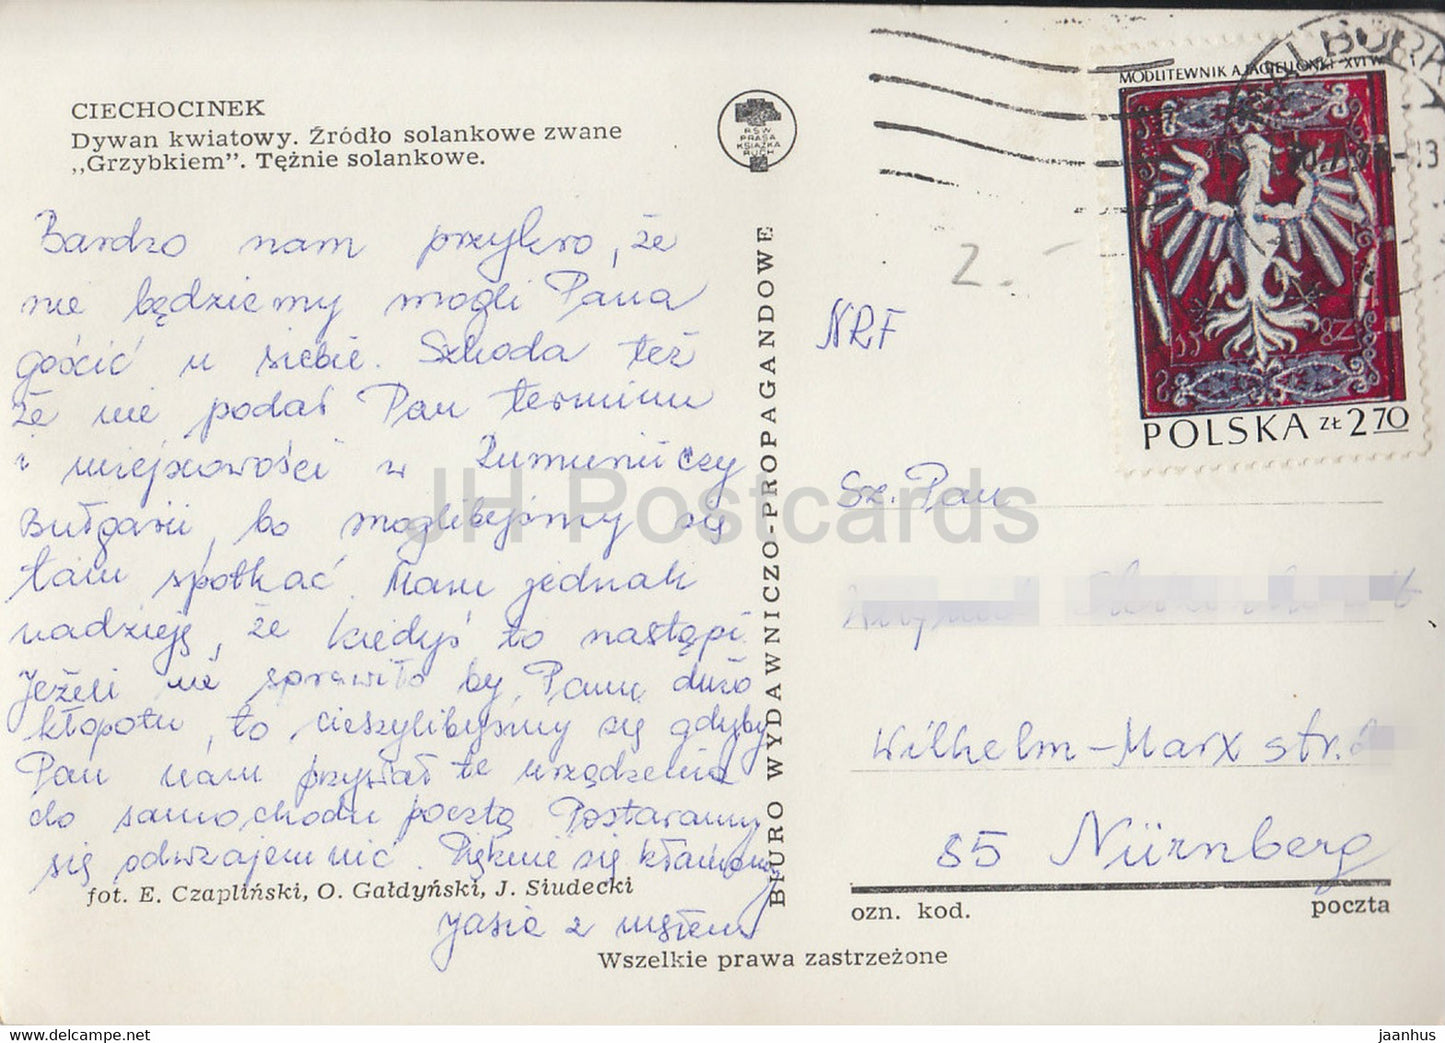 CIECHOCINEK
Dywan kwiatowy. Źródło solankowe zwane
„Grzybkiem”. Tężnie solankowe.
RSW
PRASA
KSIĄŻKA
RUCH
Bardzo nam przykro, że
nie będziemy mogli Pana
gościć u siebie. Szkoda też
że nie podał Pan terminu
i miejscowości w Rumunii czy
Bułgarii, bo moglibyśmy się
tam spotkać. Mam jednak
nadzieję, że kiedyś to nastąpi.
Jeżeli nie sprawiło by Panu dużo
kłopotu, to cieszylibyśmy się gdyby
Pan nam przysłał te urządzenia
do samochodu pocztą. Postaramy
się odwzajemnić. Pięknie się kłaniamy
fot. E. Czapliński, O. Gałdyński, J. Siudecki
Jasia z mężem
Wszelkie prawa zastrzeżone
BIURO WYDAWNICZO-PROPAGANDOWE
MODLITEWNIK A. JAGIELLONKI XVI W
POLSKA ZŁ 2,70
2.-
NRF
Sz. Pan
Wilhelm-Marx str.
85 Nürnberg
ozn. kod.
poczta
JH Postcards
https://www.delcampe.net
jaanhus